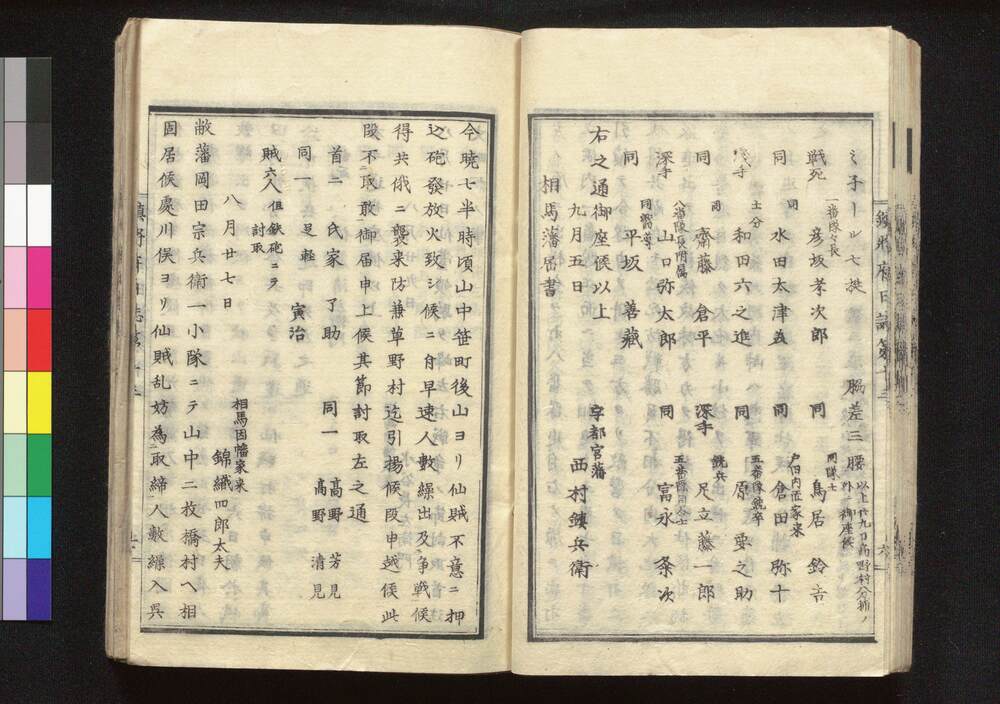 ミ子ール七挺 脇差三腰 以上廿九日駒野村分捕ノ外ニ御座候
戦死 一番隊々長 彦坂孝次郎 同 同隊士 鳥居鈴吉
同 同 水田太津為 同 戸田内匠家来 倉田弥十
浅手 士分 和田六之進 同 五番隊銃卒 原要之助
同 同 齋藤倉平 深手 銃兵 足立藤一郎
深手 八番隊長附属 山口弥太郎 同 五番隊 富永条次
同 同 平坂善藏
右之通御座候以上
九月五日 宇都宮藩 西村鎮兵衛
相馬藩届書
今曉七半時頃山中笹町後山ヨリ仙賊不意ニ押
込砲發放火致シ候ニ付早速人數繰出及爭戰候
得共俄ニ襲来防兼草野村迄引揚候段申越候此
段不取敢御届申上候其節討取左之通
首二 氏家了助 同一 高野芳見
同一 足軽 寅治 高野清見
賊六人 但鉄砲ニテ討取
八月廿七日 相馬因幡家来 錦織四郎太夫
敝藩岡田宗兵衛一小隊ニテ山中二枚橋村へ相
固居候處川俣ヨリ仙賊乱妨為取締人數繰入呉
鎮将府日誌第十三